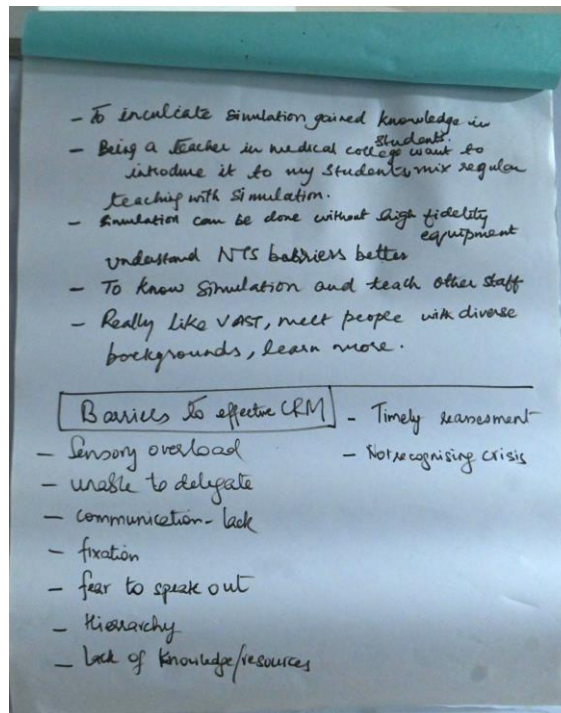 - To inculcate simulation gained knowledge in
students.
- Being a teacher in medical college want to
introduce it to my students, mix regular
teaching with simulation.
- Simulation can be done without high fidelity
equipment
understand NTS barriers better
- To know simulation and teach other staff
- Really like VAST, meet people with diverse
backgrounds, learn more.
Barriers to effective CRM
- Sensory overload
- unable to delegate
- communication - lack
- fixation
- fear to speak out
- Hierarchy
- Lack of knowledge/resources
- Timely reassesment
- Not recognising crisis